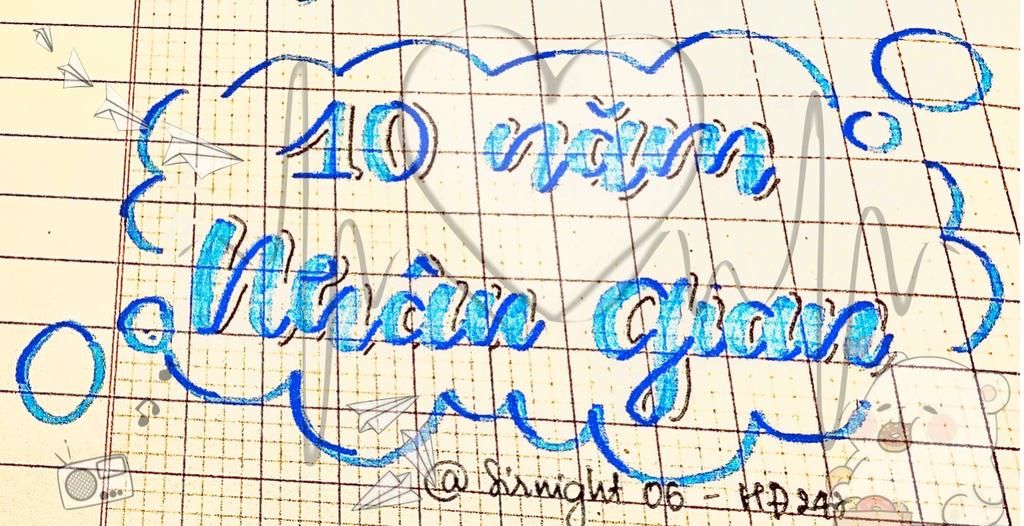 10 năm
Nhân gian
@ Sirnight 06 - HĐ247